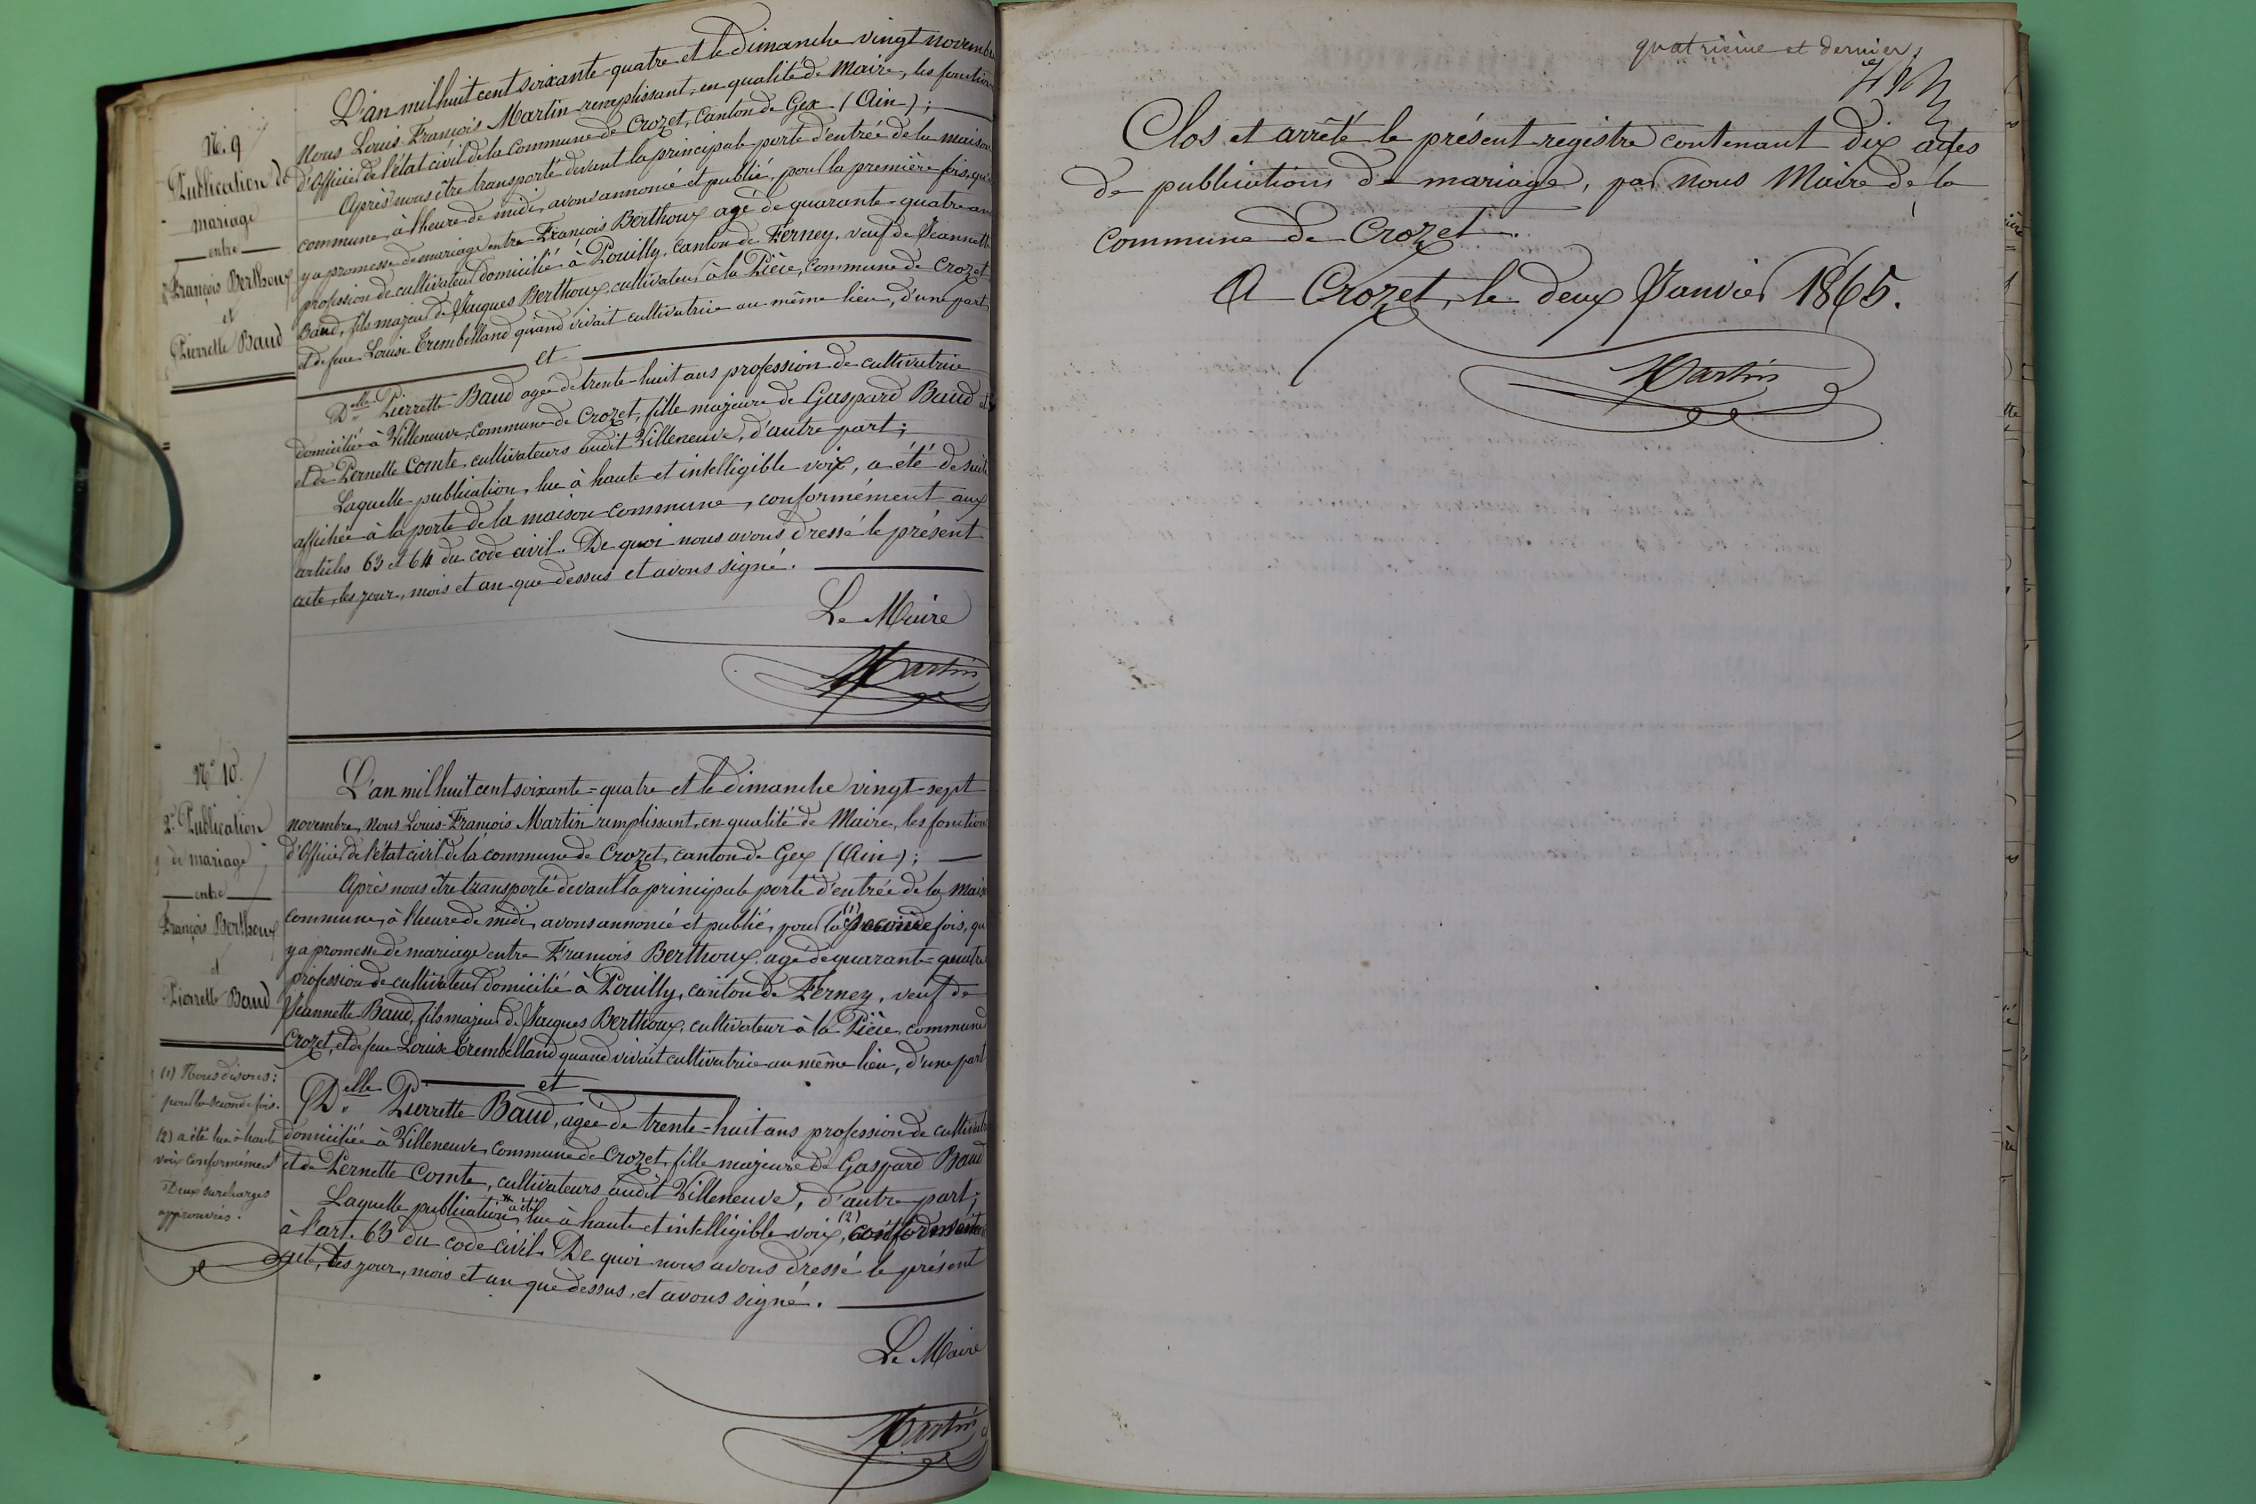 N.° 9
Publication de
mariage
entre
François Berthoux
et
Pierrette Baud
L'an mil huit cent soixante-quatre et le dimanche vingt novembre
Nous Louis François Martin remplissant, en qualité de Maire, les fonctions
d'Officier de l'état civil de la Commune de Crozet, Canton de Gex (Ain);
Après nous être transporté devant la principale porte d'entrée de la maison
commune, à l'heure de midi, avons annoncé et publié, pour la première fois, qu'il
y a promesse de mariage entre François Berthoux agé de quarante-quatre ans
profession de cultivateur domicilié à Pouilly, canton de Ferney, veuf de Jeannette
Baud, fils majeur de Jacques Berthoux, cultivateur à la Pièce, commune de Crozet
et de feue Louise Trembelland quand vivait cultivatrice au même lieu, d'une part,
et
D.elle Pierrette Baud agée de trente-huit ans profession de cultivatrice
domiciliée à Villeneuve, commune de Crozet, fille majeure de Gaspard Baud
et de Pernette Comte, cultivateurs audit Villeneuve, d'autre part;
Laquelle publication, lue à haute et intelligible voix, a été de suite
affichée à la porte de la maison commune, conformément aux
articles 63 et 64 du code civil. De quoi nous avons dressé le présent
acte, les jour, mois et an que dessus et avons signé.
Le Maire
Martin
N.° 10.
2.e Publication
de mariage
entre
François Berthoux
et
Pierrette Baud
(1) Nous disons:
pour la seconde fois.
(2) a été lue à haute
voix conformément
Deux surcharges
approuvées.
L'an mil huit cent soixante-quatre et le dimanche vingt-sept
novembre, Nous Louis-François Martin remplissant, en qualité de Maire, les fonctions
d'Officier de l'état civil de la commune de Crozet, canton de Gex (Ain);
Après nous être transporté devant la principale porte d'entrée de la maison
commune, à l'heure de midi, avons annoncé et publié, pour la (1) seconde fois, qu'il
y a promesse de mariage entre François Berthoux, agé de quarante-quatre
profession de cultivateur domicilié à Pouilly, canton de Ferney, veuf de
Jeannette Baud, fils majeur de Jacques Berthoux, cultivateur à la Pièce, commune
Crozet, et de feue Louise Trembelland quand vivait cultivatrice au même lieu, d'une part
et
D.elle Pierrette Baud, agée de trente-huit ans profession de cultivatrice
domiciliée à Villeneuve, commune de Crozet, fille majeure de Gaspard Baud
et de Pernette Comte, cultivateurs audit Villeneuve, d'autre part;
Laquelle publication, a été lue à haute et intelligible voix, (2) conformément
à l'art. 63 du code civil. De quoi nous avons dressé le présent
acte, les jour, mois et an que dessus, et avons signé.
Le Maire
Martin
quatrième et dernier,
Clos et arrêté le présent registre contenant dix actes
de publications de mariage, par Nous Maire de la
commune de Crozet.
A Crozet, le deux Janvier 1865.
Martin